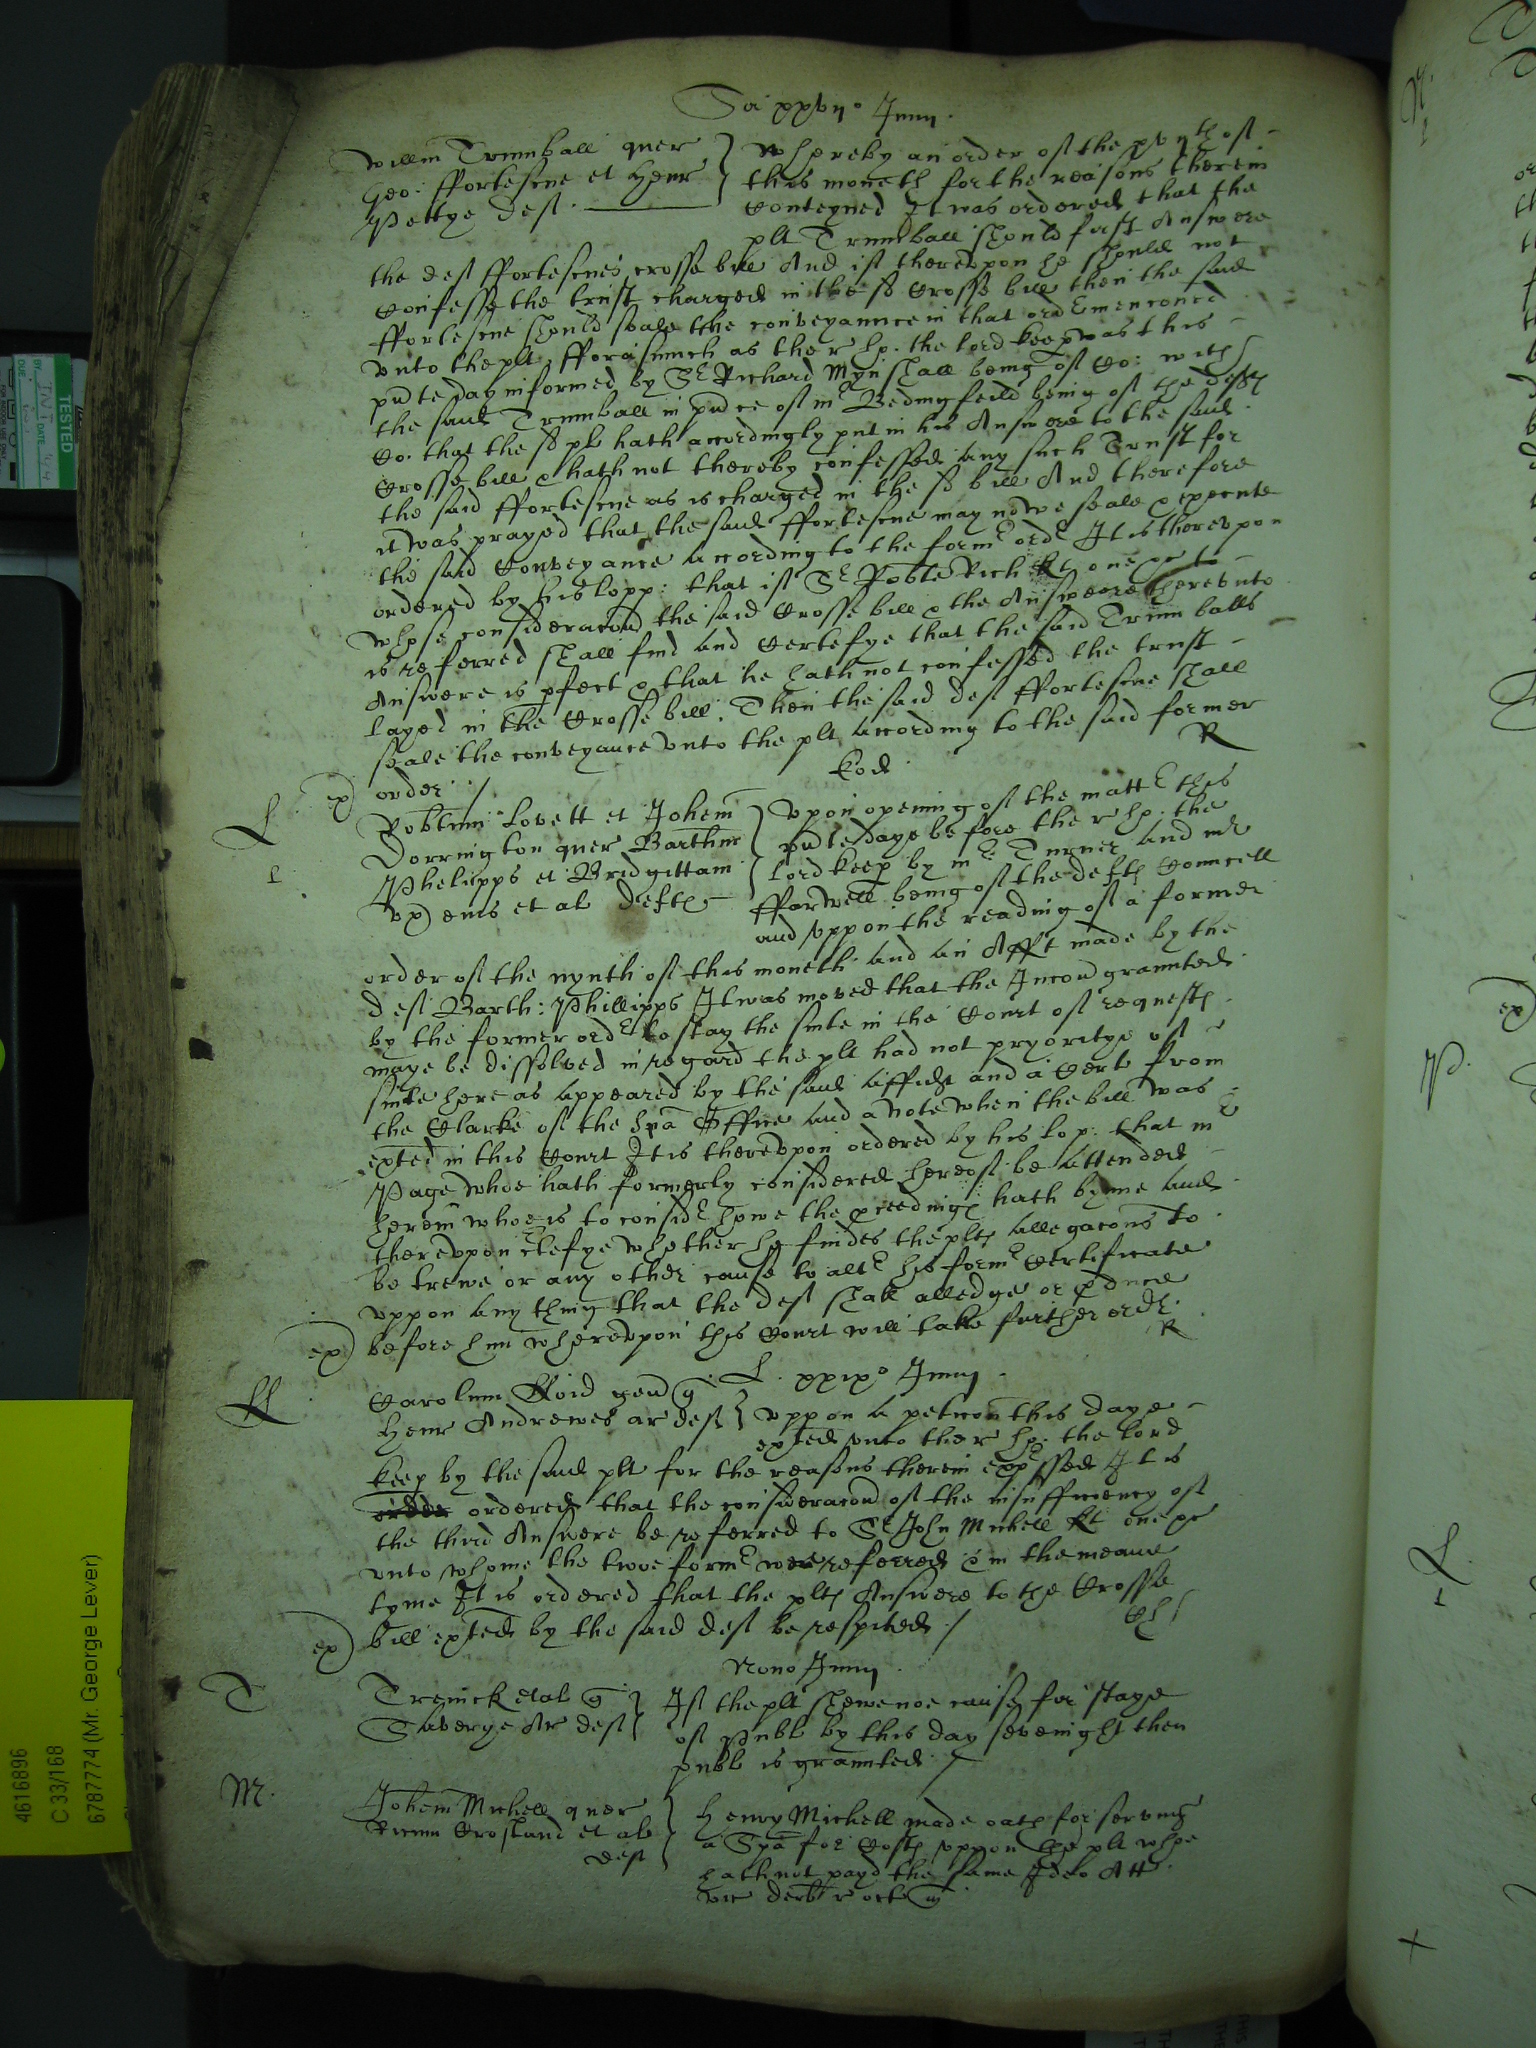 Sa xxvijo Junij
Willm Trumball quer
Geo: ffortescue et Henr
Pettye def.
Whereby an order of the xvijth of
this moneth for the reasons therein
Conteyned It was ordered that the
plt Trumball should first Answere
the def ffortescues crosse bill And if therevpon he should not
Confesse the trust charged in the sd Crosse bill then the said
ffortescue should seale the conveyannce in that ordr menconed
vnto the plt, fforasmuch as the r. hp. the lord keep was this
pnte day informed by Sr Richard Mynshall being of Co: with
the said Trumball in pnce of mr Bedingfeild being of the defts
Co. that the sd plt hath accordingly put in his Answere to the said
Crosse bill & hath not thereby confessed any such Trust for
the said ffortescue as is charged in the sd bill And therefore
it was prayed that the said ffortescue may nowe seale & execute
the said Conveyance according to the formr ordr It is therevpon
ordered by his lopp: that if Sr Robte Rich kt one &c to
whose consideracon the said Crosse bill & the Answeare therevnto
is referred shall find and Certefye that the said Trumballs
Answere is pfect & that he hath not confessed the trust
layed in the Crosse bill. Then the said def ffortescue shall
seale the conveyance vnto the plt according to the said former
order /
R
ex)
Eod
L
1
Robtum Lovett et Johem
Dorrington quer Barthm
Phelipps et Bridgittam
vx) eius et al defts
Vpon opening of the mattr this
pnte daye before the r. hp: the
lord keep by mr Turner and mr
ffarwell being of the defts Councell
and vppon the reading of a former
order of the nynth of this moneth and an Afft made by the
def Barth: Phillipps It was moved that the Incon graunted
by the former ordr to stay the suite in the Court of requests
maye be dissolved in regard the plt had not pryoritye of
suite here as appeared by the said affidt and a Certe from
the Clarke of the hpa Office and a note when the bill was
exted in this Court It is therevpon ordered by his lop: that mr
Page whoe hath formerly considered hereof be attended
herein whoe is to considr howe the pceedings hath byme and
therevpon ctefye whether he findes the plts allegacons to
be trewe or any other cause to altr his formr Certificate
vppon any thing that the def shall alledge or pduce
before him wherevpon this Court will take further ordr.
R
ex)
L. xxixo Junij
ff
Carolum ffloid gen q
Henr Andrewes ar def
Vppon a peticon this daye
exted vnto the r. hp: the lord
keep by the said plt for the reasons therein expssed It is
ordered that the consideracon of the insufficiency of
the third Answere be referred to Sr John Michell kt one &c
vnto whome the twoe formr were referred & in the meane
tyme It is ordered that the plts Answere to the Crosse
bill exted by the said def be respited /
ex)
Nono Junij
T
Trenick et al q
Saverye Ar def
If the plt shewe noe cause for staye
of Publ by this day sevenight then
publ is graunted /
M.
Johem Michell quer
Ricum Crosland et al
def
Henry Michell made oath for serving
a Spa for Costs vppon the plt whoe
hath not payd the same Ideo Att
vic derb r octo
4616896
C 33/168
6787774 (Mr. George Lever)
TESTED